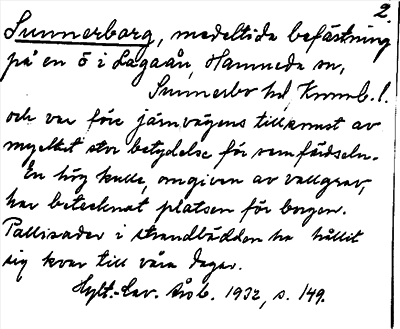 2.
Sunnerborg, medeltida befästning
på en ö i Lagaån, Hamneda sn,
Sunnerbo hd, Kronob. l.
och var före järnvägens tillkomst av
mycket stor betydelse för samfärdseln.
En hög kulle, omgiven av vallgrav,
har betecknat platsen för borgen.
Pallisader i strandbädden ha hållit
sig kvar till våra dagar.
Hylt.-Cav. årsb. 1932, s. 149.